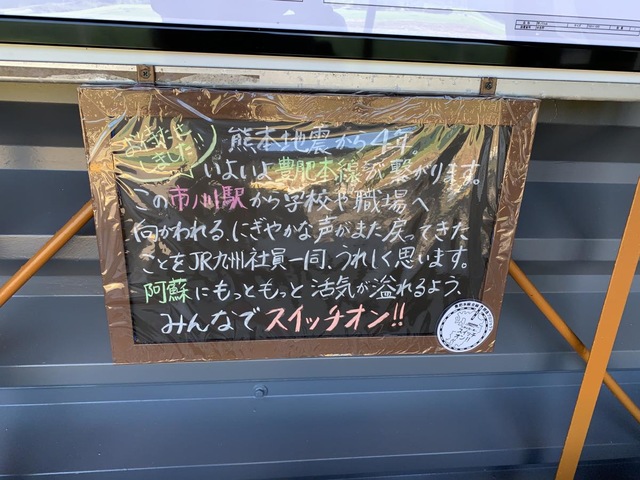 お待たせ
しました!!
熊本地震から4年。
いよいよ豊肥本線が繋がります。
この市ノ川駅から学校や職場へ
向かわれる、にぎやかな声がまた戻ってきた
ことをJR九州社員一同、うれしく思います。
阿蘇にもっともっと活気が溢れるよう、
みんなでスイッチオン!!